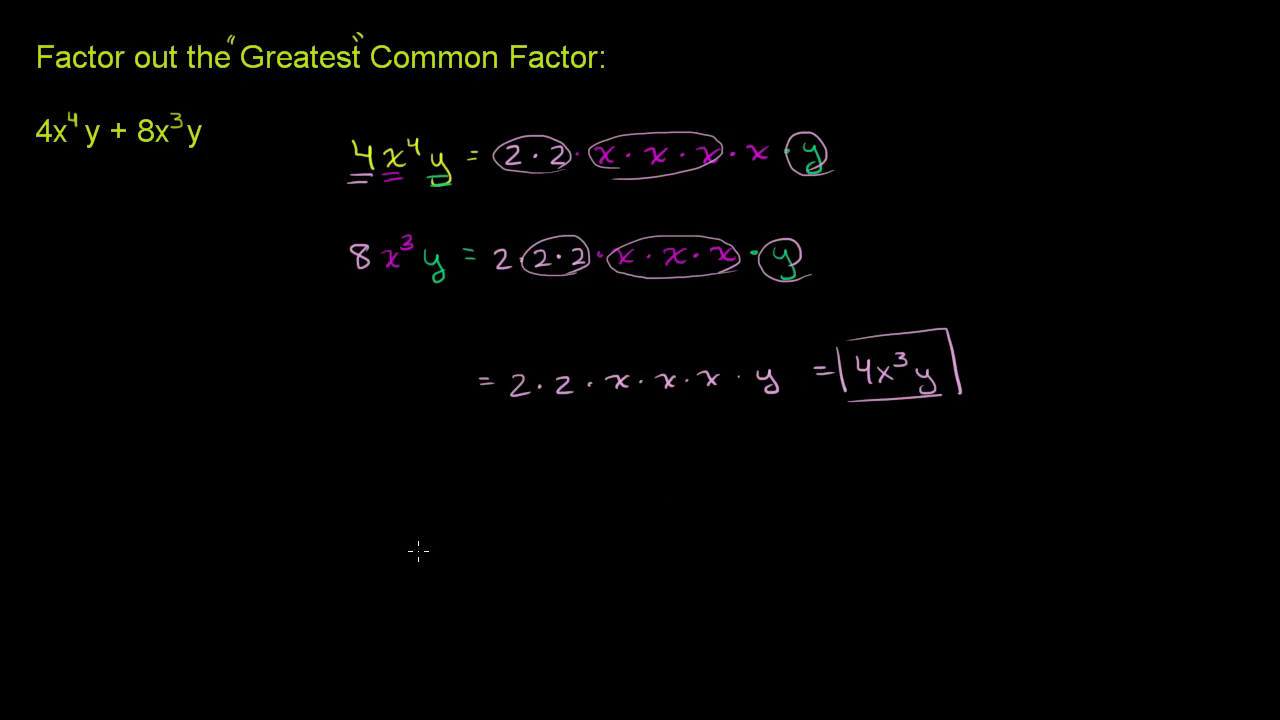 Factor out the "Greatest" Common Factor:
4x⁴y + 8x³y
4x⁴y = 2 · 2 · x · x · x · x · y
8x³y = 2 · 2 · 2 · x · x · x · y
= 2 · 2 · x · x · x · y = 4x³y